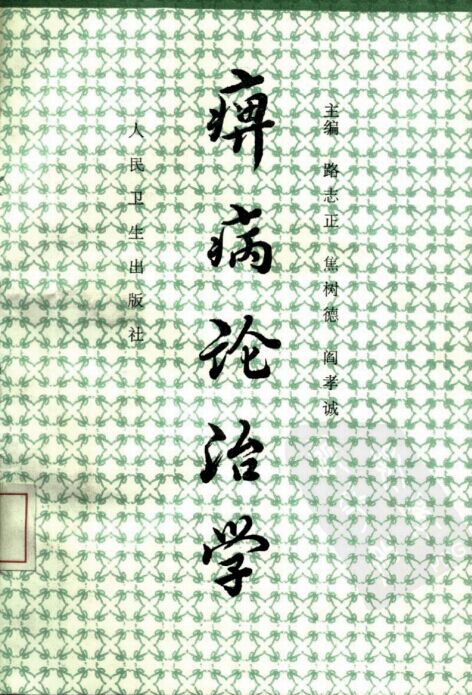 主编 路志正 焦树德 阎孝诚
痹病论治学
人民卫生出版社